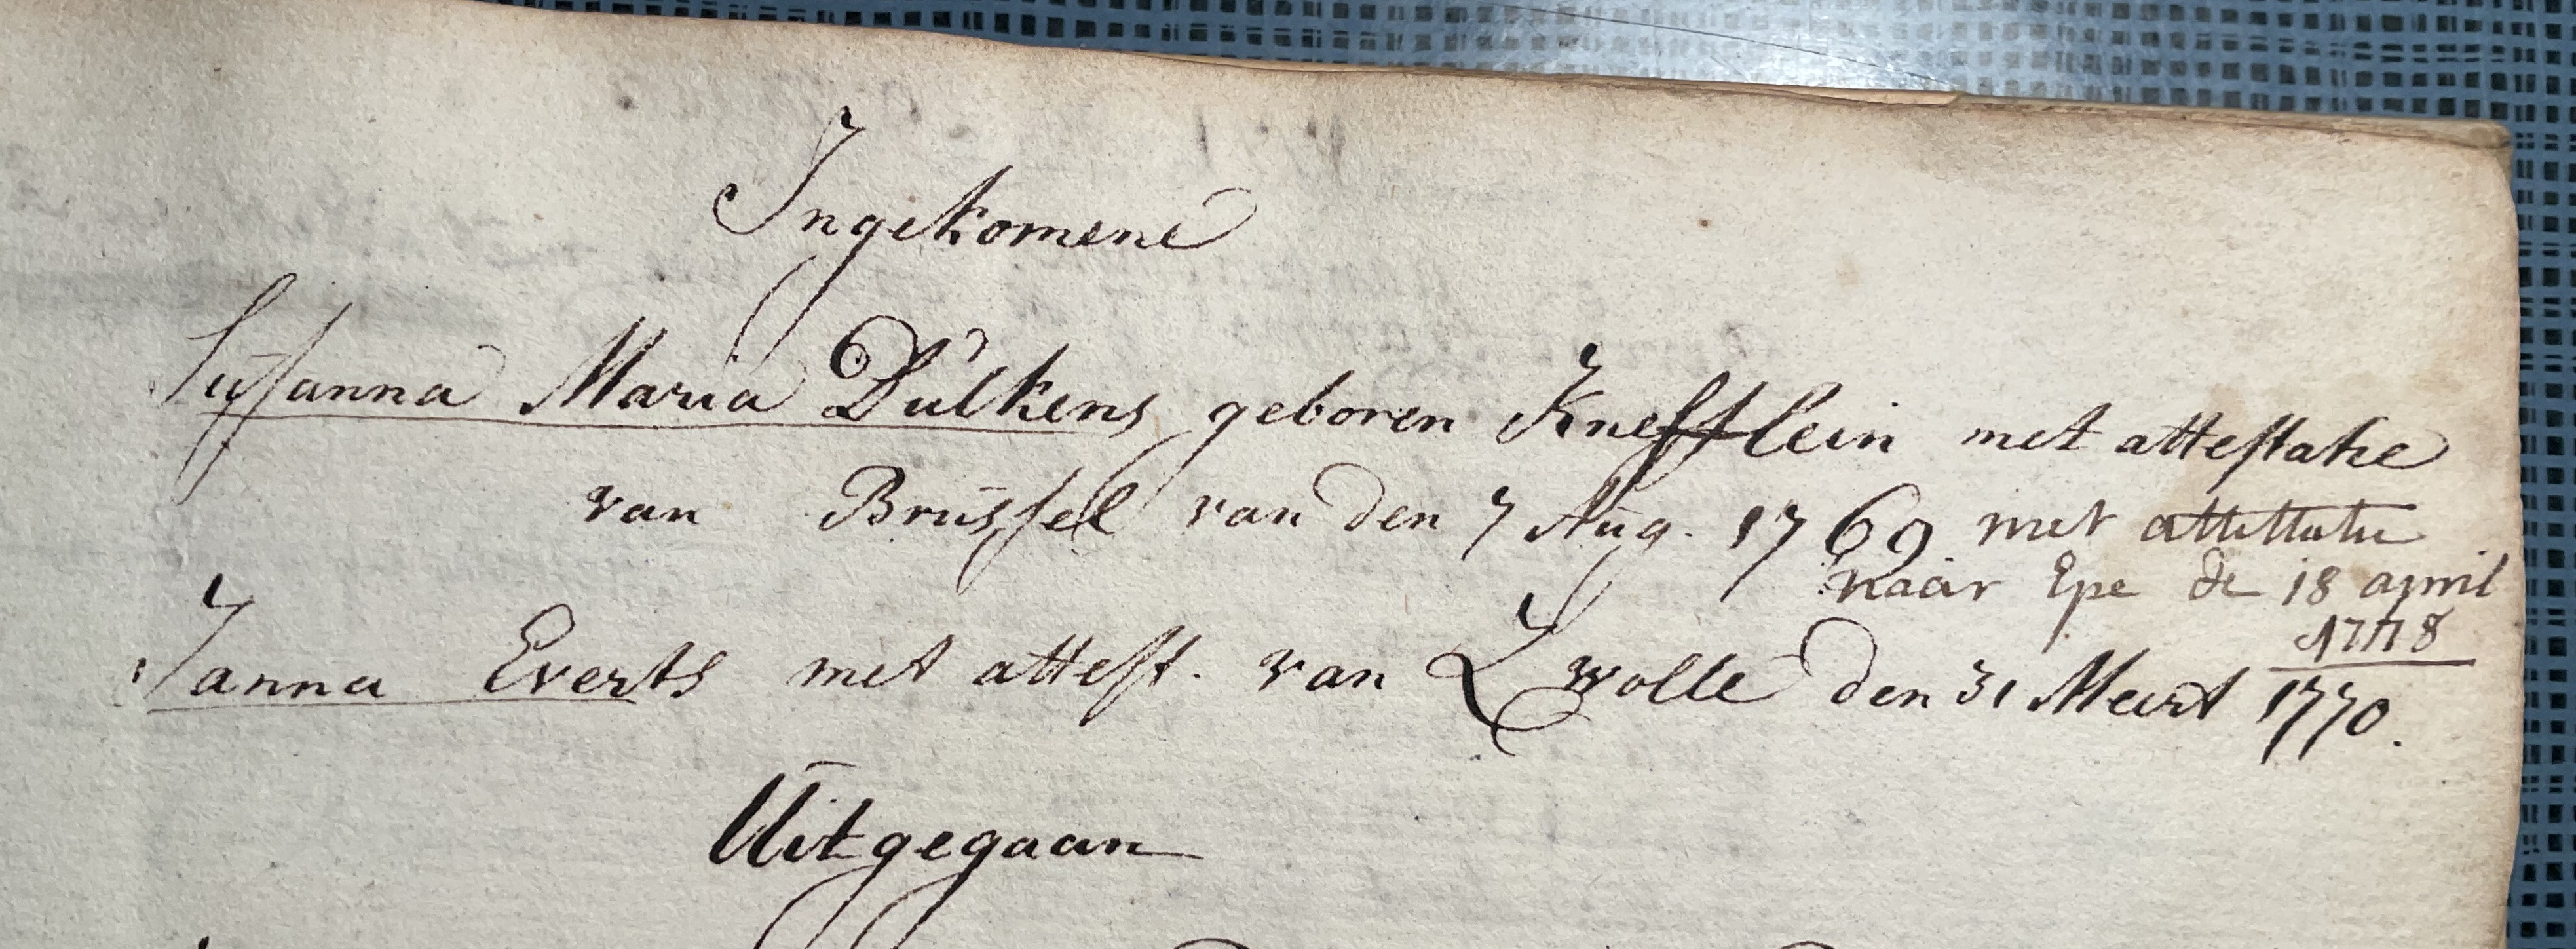 Ingekomene
Susanna Maria Dulkens geboren Knefflein met attestatie
van Brussel van den 7 Aug. 1769 met attestatie
naar Epe de 18 april
1778
Janna Everts met attest. van Zwolle den 31 Meert 1770.
Uitgegaan